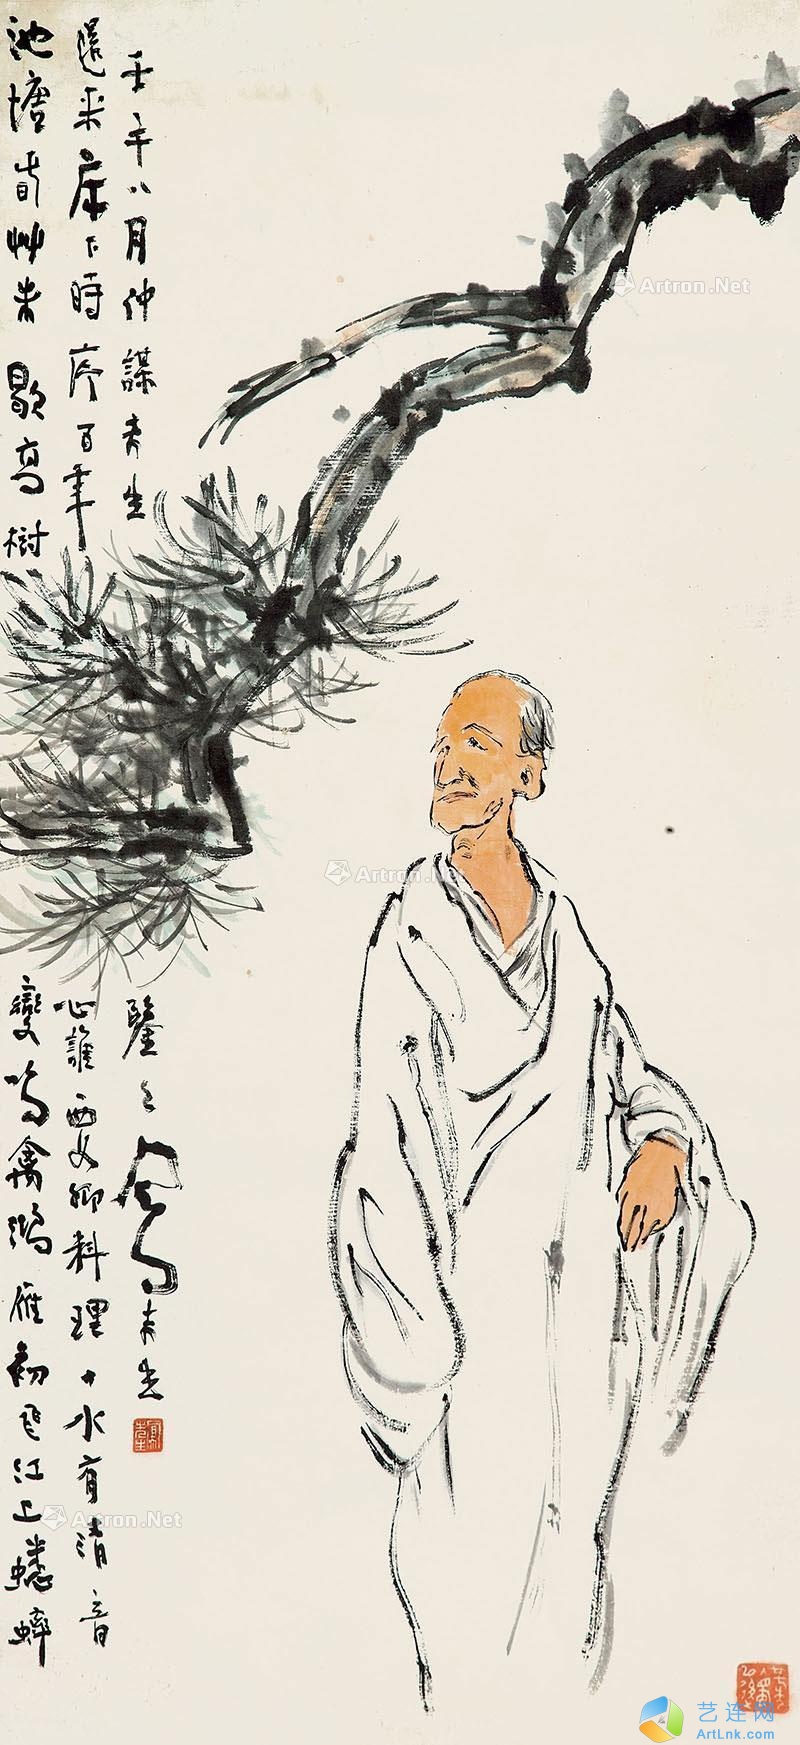 池塘春艸未歇高樹變鳴禽鴻雁初飛江上蟋蟀
還來床下時序百年心誰要卿料理山水有清音
壬午八月仲謀先生鑒之
Artron.Net
Artron.Net
Artron.Net
Artron.Net
艺连网
ArtLnk.com